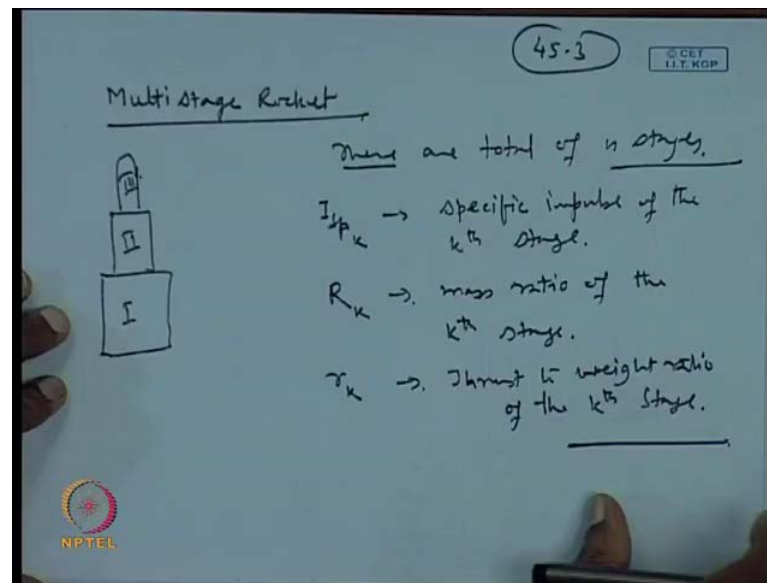 45.3
© CET
I.I.T. KGP
Multistage Rocket
There are total of n stages.
I_{sp_k} → specific impulse of the
k^{th} stage.
R_k → mass ratio of the
k^{th} stage.
r_k → Thrust to weight ratio
of the k^{th} stage.
III
II
I
NPTEL